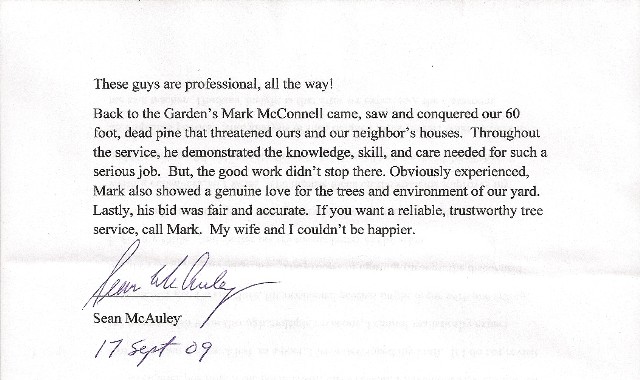 These guys are professional, all the way!
Back to the Garden's Mark McConnell came, saw and conquered our 60
foot, dead pine that threatened ours and our neighbor's houses.  Throughout
the service, he demonstrated the knowledge, skill, and care needed for such a
serious job.  But, the good work didn't stop there. Obviously experienced,
Mark also showed a genuine love for the trees and environment of our yard.
Lastly, his bid was fair and accurate.  If you want a reliable, trustworthy tree
service, call Mark.  My wife and I couldn't be happier.
Sean McAuley
Sean McAuley
17 Sept 09